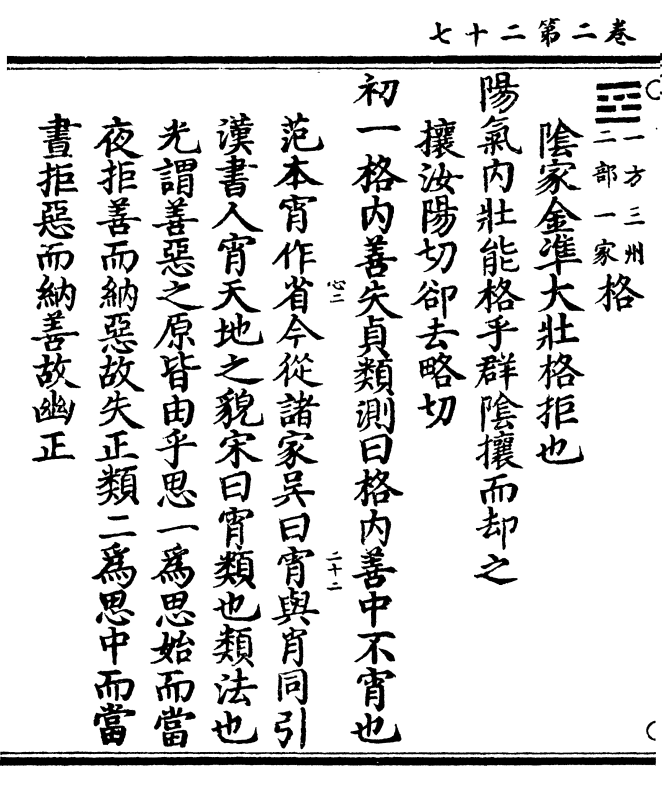 卷二第二十七
一方三州
二部一家
格
陰家金準大壯格拒也
陽氣内壯能格乎群陰攘而却之
攘汝陽切卻去略切
初一格内善失貞類測曰格内善中不宵也
范本宵作省今從諸家吳曰宵與肖同引
心二
二十二
漢書人宵天地之貌宋曰宵類也類法也
光謂善惡之原皆由乎思一爲思始而當
夜拒善而納惡故失正類二爲思中而當
晝拒惡而納善故幽正